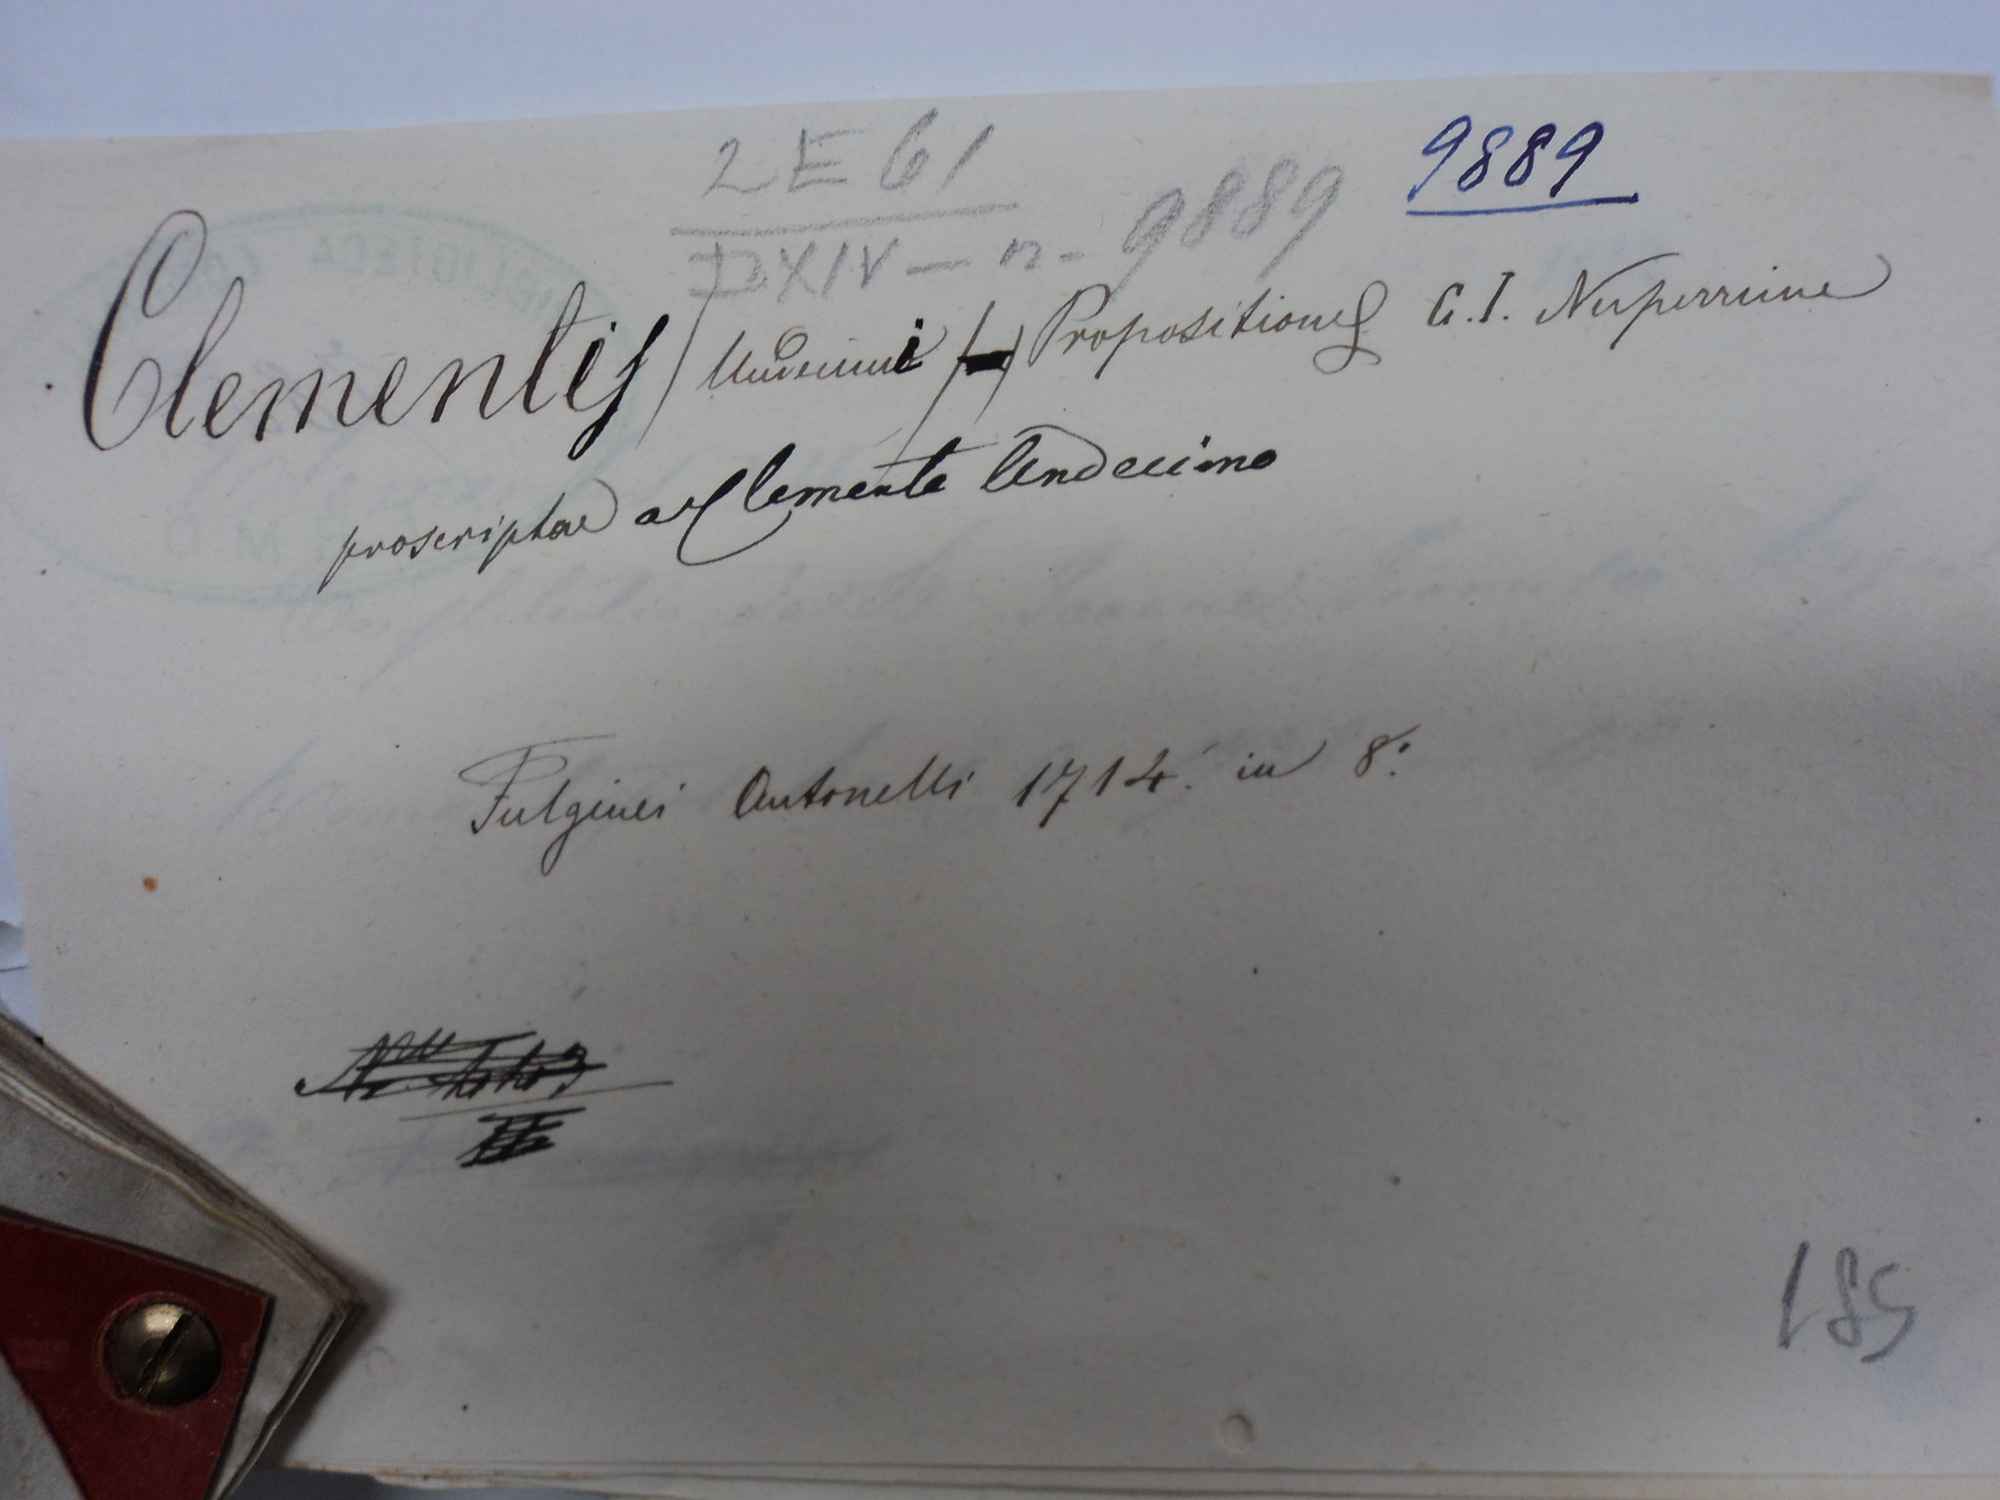 2 E 61 9889
DXIV - n. 9889
Clementis / Undecimi / Propositiones C.I. Nuperrime
proscriptae a Clemente Undecimo
Fulginei Antonelli 1714. in 8.°
185